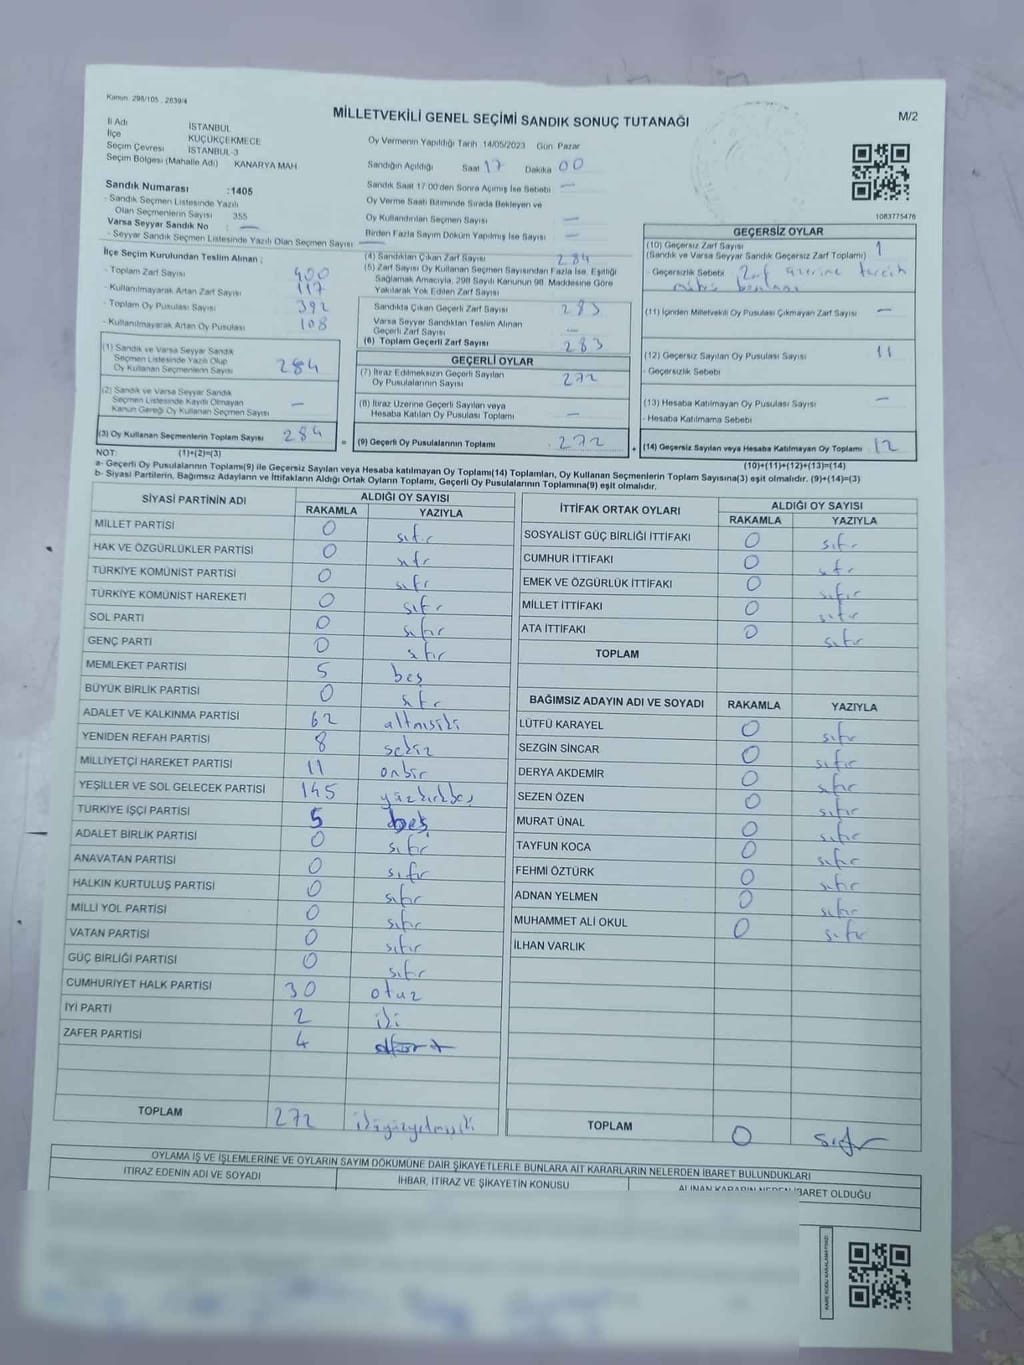 Kanun: 298/105 , 2839/4
MİLLETVEKİLİ GENEL SEÇİMİ SANDIK SONUÇ TUTANAĞI
M/2
İl Adı İSTANBUL
İlçe KÜÇÜKÇEKMECE
Seçim Çevresi İSTANBUL-3
Seçim Bölgesi (Mahalle Adı) KANARYA MAH
Oy Vermenin Yapıldığı Tarih 14/05/2023 Gün Pazar
Sandığın Açıldığı Saat 17 Dakika 00
Sandık Saat 17 00'den Sonra Açılmış İse Sebebi —
Oy Verme Saati Bitiminde Sırada Bekleyen ve
Oy Kullandırılan Seçmen Sayısı —
Birden Fazla Sayım Döküm Yapılmış İse Sayısı —
1083775476
Sandık Numarası :1405
- Sandık Seçmen Listesinde Yazılı
Olan Seçmenlerin Sayısı 355
Varsa Seyyar Sandık No : —
- Seyyar Sandık Seçmen Listesinde Yazılı Olan Seçmen Sayısı —
İlçe Seçim Kurulundan Teslim Alınan :
- Toplam Zarf Sayısı 400
- Kullanılmayarak Artan Zarf Sayısı 117
- Toplam Oy Pusulası Sayısı 392
- Kullanılmayarak Artan Oy Pusulası 108
(1) Sandık ve Varsa Seyyar Sandık
Seçmen Listesinde Yazılı Olup
Oy Kullanan Seçmenlerin Sayısı 284
(2) Sandık ve Varsa Seyyar Sandık
Seçmen Listesinde Kayıtlı Olmayan
Kanun Gereği Oy Kullanan Seçmen Sayısı —
(3) Oy Kullanan Seçmenlerin Toplam Sayısı 284
(4) Sandıktan Çıkan Zarf Sayısı 284
(5) Zarf Sayısı Oy Kullanan Seçmen Sayısından Fazla İse, Eşitliği
Sağlamak Amacıyla, 298 Sayılı Kanunun 98. Maddesine Göre
Yakılarak Yok Edilen Zarf Sayısı
Sandıkta Çıkan Geçerli Zarf Sayısı 283
Varsa Seyyar Sandıktan Teslim Alınan
Geçerli Zarf Sayısı —
(6) Toplam Geçerli Zarf Sayısı 283
GEÇERLİ OYLAR
(7) İtiraz Edilmeksizin Geçerli Sayılan
Oy Pusulalarının Sayısı 272
(8) İtiraz Üzerine Geçerli Sayılan veya
Hesaba Katılan Oy Pusulası Toplamı —
= (9) Geçerli Oy Pusulalarının Toplamı 272
GEÇERSİZ OYLAR
(10) Geçersiz Zarf Sayısı 1
(Sandık ve Varsa Seyyar Sandık Geçersiz Zarf Toplamı)
- Geçersizlik Sebebi Zarf üzerine tercih
mührü basılması
(11) İçinden Milletvekili Oy Pusulası Çıkmayan Zarf Sayısı —
(12) Geçersiz Sayılan Oy Pusulası Sayısı 11
- Geçersizlik Sebebi
(13) Hesaba Katılmayan Oy Pusulası Sayısı —
- Hesaba Katılmama Sebebi
+ (14) Geçersiz Sayılan veya Hesaba Katılmayan Oy Toplamı 12
NOT: (1)+(2)=(3)
(10)+(11)+(12)+(13)=(14)
a- Geçerli Oy Pusulalarının Toplamı(9) ile Geçersiz Sayılan veya Hesaba katılmayan Oy Toplamı(14) Toplamları, Oy Kullanan Seçmenlerin Toplam Sayısına(3) eşit olmalıdır. (9)+(14)=(3)
b- Siyasi Partilerin, Bağımsız Adayların ve İttifakların Aldığı Ortak Oyların Toplamı, Geçerli Oy Pusulalarının Toplamına(9) eşit olmalıdır.
SİYASİ PARTİNİN ADI ALDIĞI OY SAYISI
RAKAMLA YAZIYLA
MİLLET PARTİSİ 0 sıfır
HAK VE ÖZGÜRLÜKLER PARTİSİ 0 sıfır
TÜRKİYE KOMÜNİST PARTİSİ 0 sıfır
TÜRKİYE KOMÜNİST HAREKETİ 0 sıfır
SOL PARTİ 0 sıfır
GENÇ PARTİ 0 sıfır
MEMLEKET PARTİSİ 5 beş
BÜYÜK BİRLİK PARTİSİ 0 sıfır
ADALET VE KALKINMA PARTİSİ 62 altmışiki
YENİDEN REFAH PARTİSİ 8 sekiz
MİLLİYETÇİ HAREKET PARTİSİ 11 onbir
YEŞİLLER VE SOL GELECEK PARTİSİ 145 yüzkırkbeş
TÜRKİYE İŞÇİ PARTİSİ 5 beş
ADALET BİRLİK PARTİSİ 0 sıfır
ANAVATAN PARTİSİ 0 sıfır
HALKIN KURTULUŞ PARTİSİ 0 sıfır
MİLLİ YOL PARTİSİ 0 sıfır
VATAN PARTİSİ 0 sıfır
GÜÇ BİRLİĞİ PARTİSİ 0 sıfır
CUMHURİYET HALK PARTİSİ 30 otuz
İYİ PARTİ 2 iki
ZAFER PARTİSİ 4 dört
TOPLAM 272 ikiyüzyetmişiki
İTTİFAK ORTAK OYLARI ALDIĞI OY SAYISI
RAKAMLA YAZIYLA
SOSYALİST GÜÇ BİRLİĞİ İTTİFAKI 0 sıfır
CUMHUR İTTİFAKI 0 sıfır
EMEK VE ÖZGÜRLÜK İTTİFAKI 0 sıfır
MİLLET İTTİFAKI 0 sıfır
ATA İTTİFAKI 0 sıfır
TOPLAM
BAĞIMSIZ ADAYIN ADI VE SOYADI RAKAMLA YAZIYLA
LÜTFÜ KARAYEL 0 sıfır
SEZGİN SİNCAR 0 sıfır
DERYA AKDEMİR 0 sıfır
SEZEN ÖZEN 0 sıfır
MURAT ÜNAL 0 sıfır
TAYFUN KOCA 0 sıfır
FEHMİ ÖZTÜRK 0 sıfır
ADNAN YELMEN 0 sıfır
MUHAMMET ALİ OKUL 0 sıfır
İLHAN VARLIK
TOPLAM 0 sıfır
OYLAMA İŞ VE İŞLEMLERİNE VE OYLARIN SAYIM DÖKÜMÜNE DAİR ŞİKAYETLERLE BUNLARA AİT KARARLARIN NELERDEN İBARET BULUNDUKLARI
İTİRAZ EDENİN ADI VE SOYADI İHBAR, İTİRAZ VE ŞİKAYETİN KONUSU ALINAN KARARIN NEDEN İBARET OLDUĞU